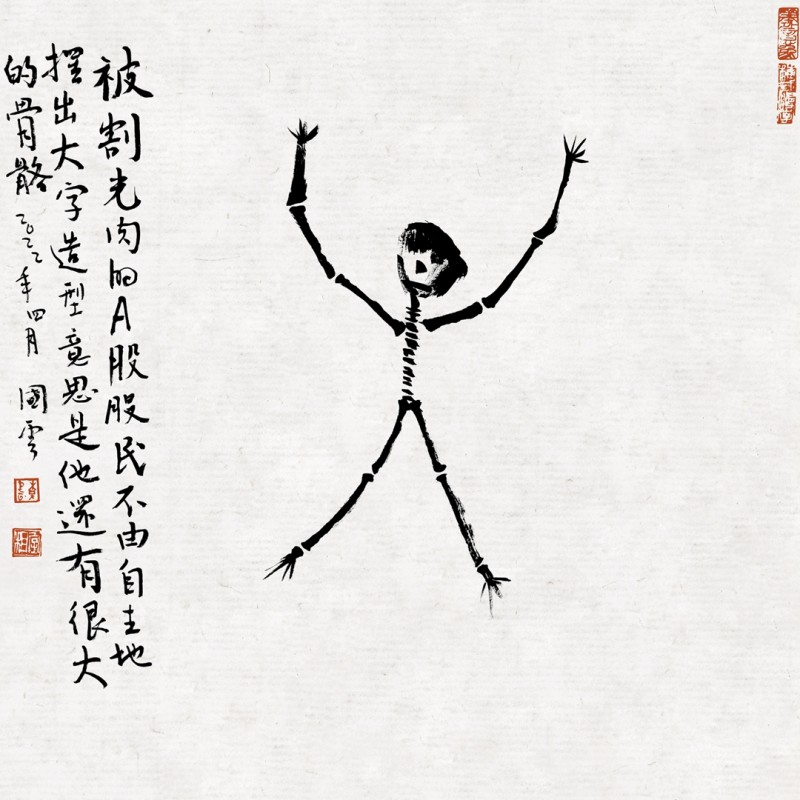 被割光肉的A股股民不由自主地
摆出大字造型意思是他还有很大
的骨骼 二〇二二年四月 國雲